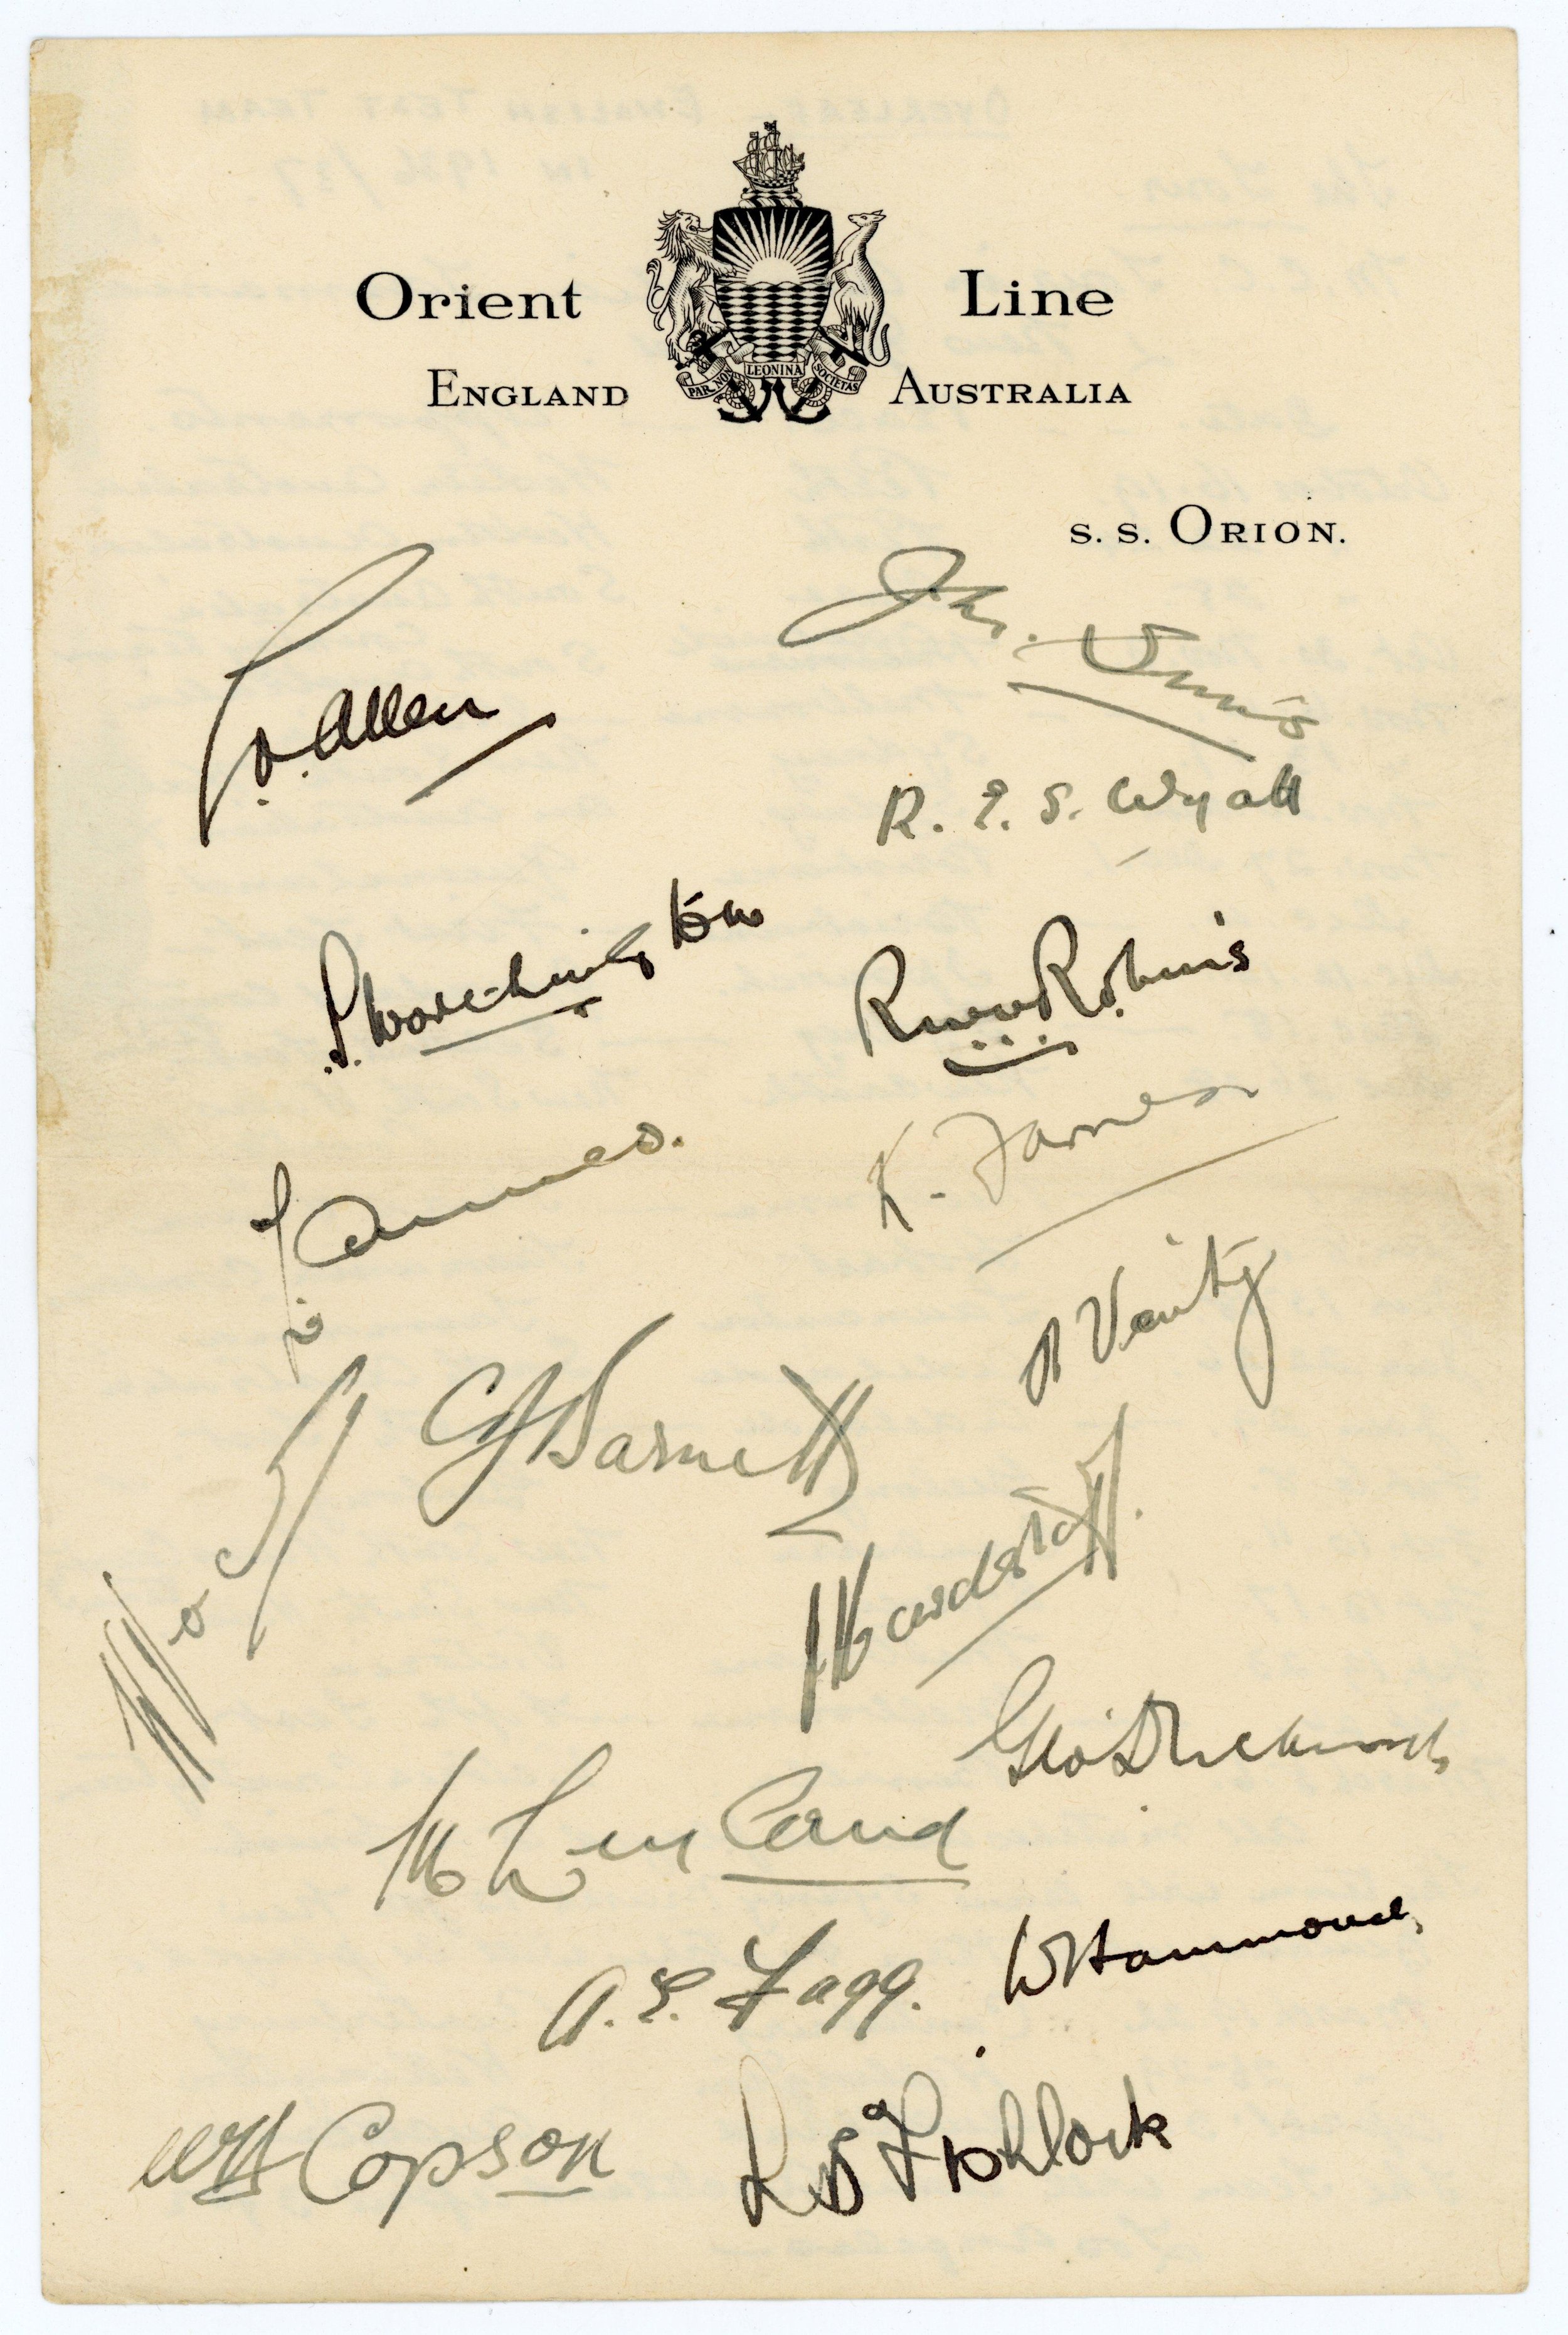 Orient Line
ENGLAND AUSTRALIA
PAR NON LEONINA SOCIETAS
S. S. ORION.
G.O. Allen
R. E. S. Wyatt
T.S. Worthington
R.W.V. Robins
L. Ames.
K. Farnes
H Verity
C J Barnett
J Hardstaff.
Geo Duckworth
M Leyland
W R Hammond,
A. E. Fagg.
W H Copson
L B Fishlock